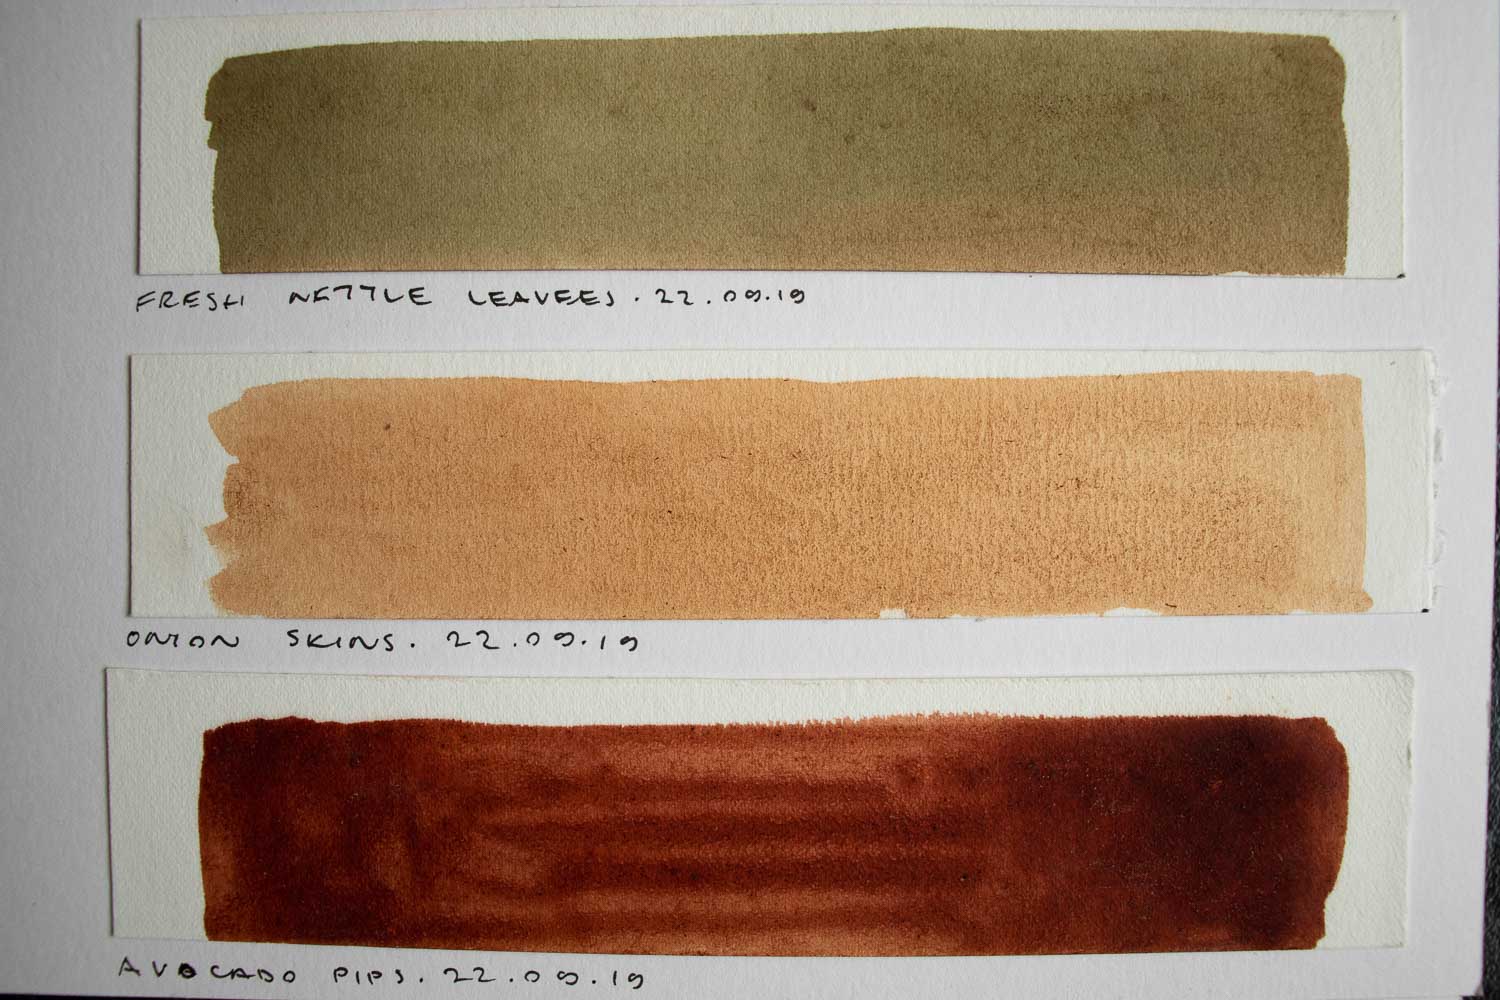 FRESH NETTLE LEAVEES. 22.09.19
ONION SKINS. 22.09.19
AVOCADO PIPS. 22.09.19